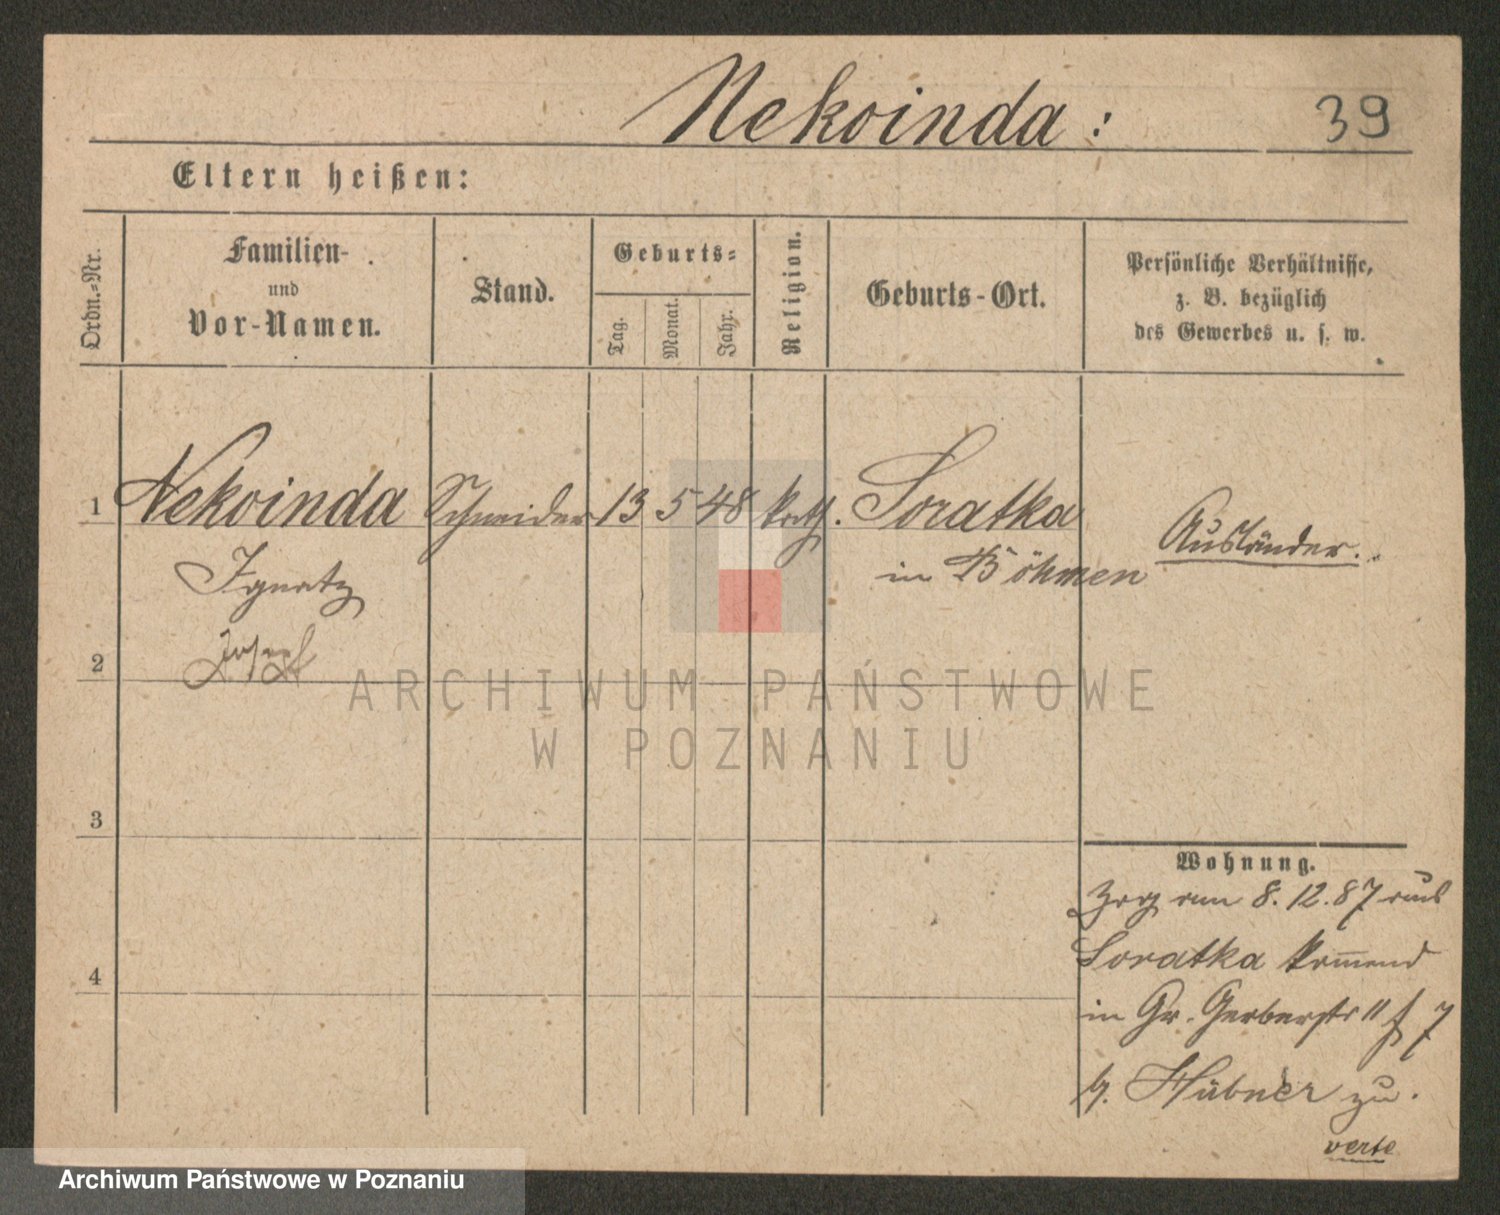 Nekvinda: 39
Eltern heißen:
Ordn.-Nr.
Familien-
und
Vor-Namen.
Stand.
Geburts-
Tag.
Monat.
Jahr.
Religion.
Geburts-Ort.
Persönliche Verhältnisse,
z. B. bezüglich
des Gewerbes u. s. w.
1 Nekvinda Schneider 13 5 48 kath. Soratka
in Böhmen
Ausländer.
Ignatz
Josef
2
3
4
Wohnung.
Zog am 8.12.87 aus
Soratka kom̅end
in Gr. Gerberstr 11 7
b. Hübner zu.
verte
ARCHIWUM PAŃSTWOWE
W POZNANIU
Archiwum Państwowe w Poznaniu